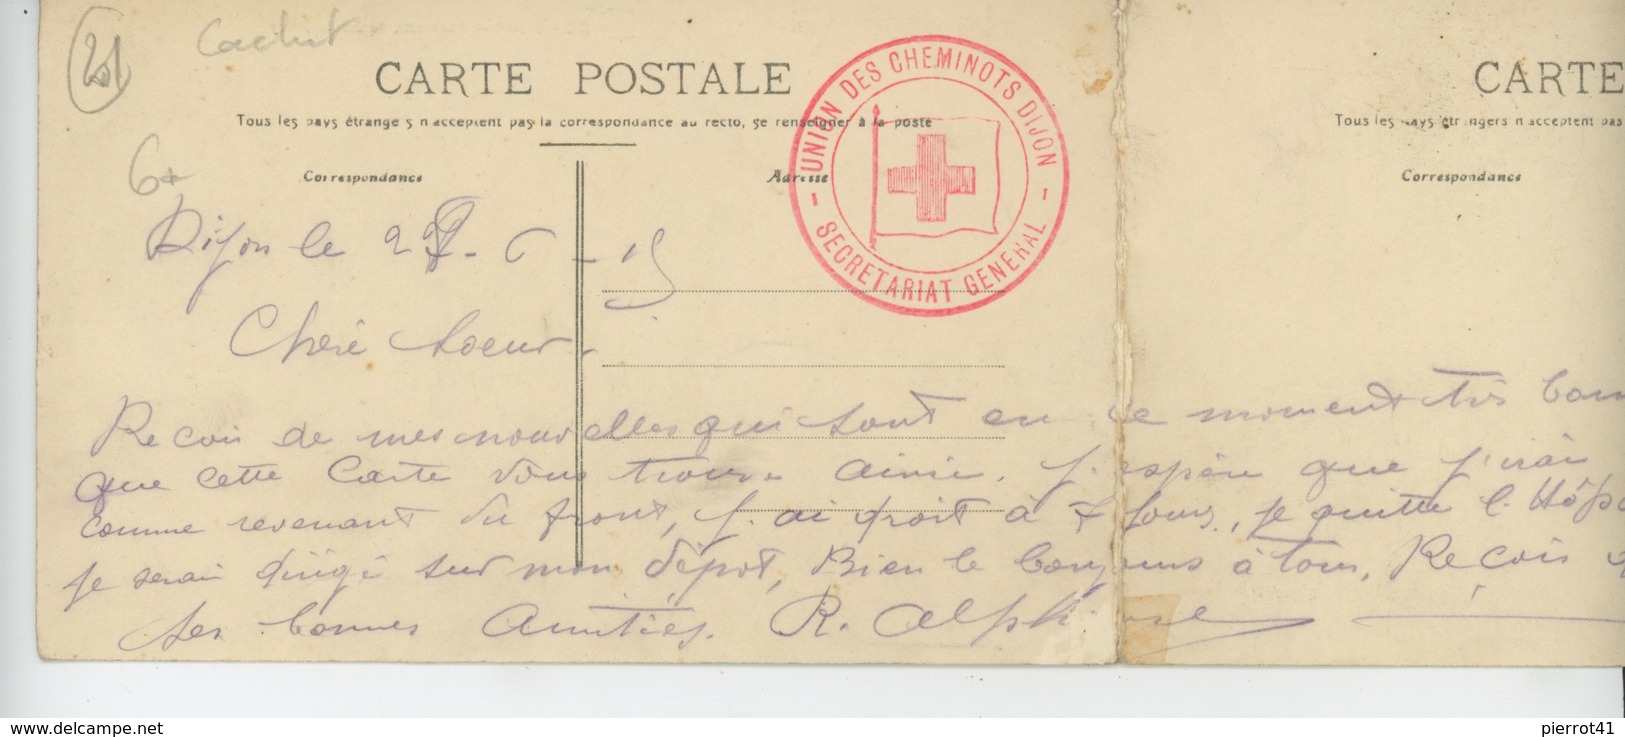 21
Cachet
CARTE POSTALE
Tous les pays étrangers n'acceptent pas la correspondance au recto, se renseigner à la poste
Correspondance
Adresse
UNION DES CHEMINOTS DIJON
- SECRETARIAT GENERAL -
6+
CARTE
Tous les pays étrangers n'acceptent pas
Correspondance
Dijon le 2 - 6 - 15
Chère Soeur
Recois de mes nouvelles qui sont en ce moment très bonn
que cette Carte vous trouve ainsi. J'espère que j'irai
comme revenant du front, j'ai droit à 7 jours, je quitte l'Hôp
je serai dirigé sur mon dépot, Bien le bonjour à tous, Recois
Ses bonnes Amitiés. R. Alphonse
www.delcampe.net
pierrot41